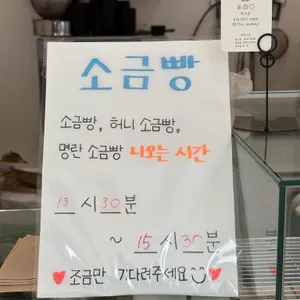 소금빵
소금빵, 허니 소금빵,
명란 소금빵 나오는 시간
13 시 30 분
~ 15 시 30 분
♥ 조금만 기다려주세요 ☺ ♥